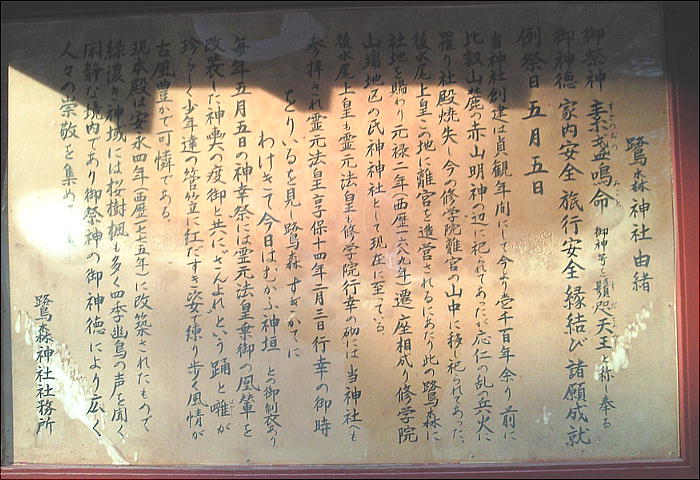 鷺森神社由緒
御祭神 素盞鳴命 御神号を鬚咫天王と称し奉る
すさのおの みこと
御神徳 家内安全 旅行安全 縁結び 諸願成就
例祭日 五月五日
当神社創建は貞観年間にして今より壱千百年余り前に
比叡山麓の赤山明神の辺に祀られてあったが応仁の乱の兵火に
罹り社殿焼失し今の修学院離宮の山中に移し祀られてあった、
後水尾上皇この地に離宮を造営されるにあたり此の鷺森に
社地を賜わり元禄二年(西暦一六八九年)遷座相成り修学院
山端地区の氏神神社として現在に至っている。
後水尾上皇も霊元法皇も修学院行幸の砌には当神社へも
参拝され霊元法皇享保十四年二月三日行幸の御時
をりいるを見し鷺森すぎかてに
わけきて今日はむかふ神垣 との御制衣あり
毎年五月五日の神幸祭には霊元法皇乗御の鳳輦を
改装した神輿の渡御と共に、さんよれという踊と囃が
珍らしく少年達の菅笠に紅だすき姿で練り歩く風情が
古風豊かで可憐である。
現本殿は安永四年(西歴一七七五年)に改築されたもので
緑濃き神域には桜樹楓も多く四季幽鳥の声を聞く
閑静な境内であり御祭神の御神徳により広く
人々の崇敬を集め
鷺森神社社務所